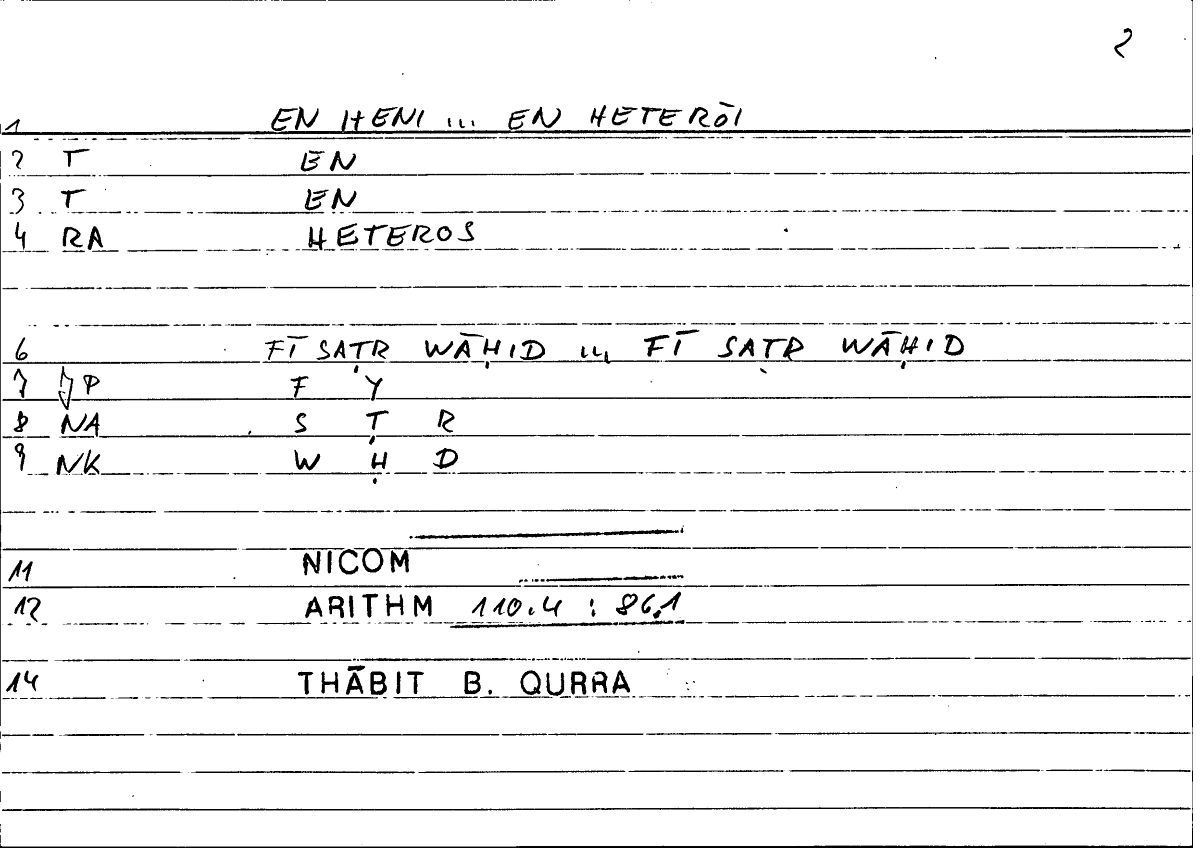 2
1 EN HENI ... EN HETERŌI
2 T EN
3 T EN
4 RA HETEROS
6 FĪ SAṬR WĀḤID ... FĪ SAṬR WĀḤID
7 P F Y
8 NA S Ṭ R
9 NK W Ḥ D
11 NICOM
12 ARITHM 110.4 : 86.1
14 THĀBIT B. QURRA